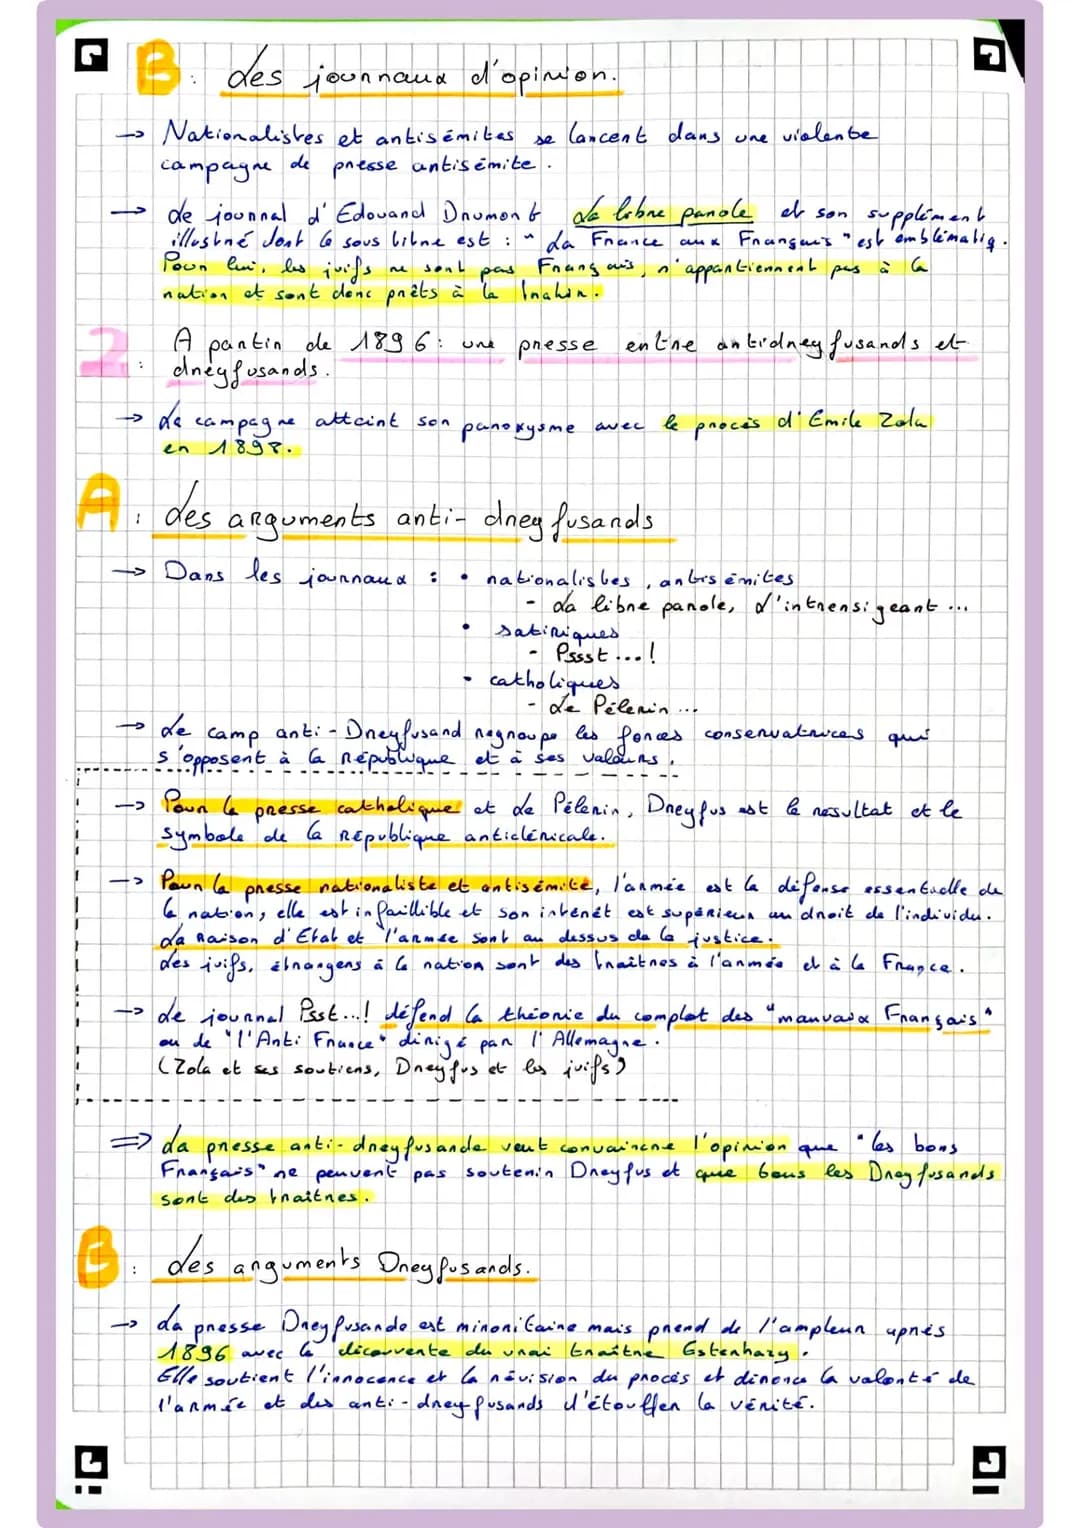 B : Les journaux d'opinion.
→ Nationalistes et antisémites se lancent dans une violente
campagne de presse antisémite.
→ Le journal d'Edouard Drumont La libre parole et son supplément
illustré dont le sous titre est : " La France aux Français " est emblématiq.
Pour lui, les juifs ne sont pas Français, n'appartiennent pas à la
nation et sont donc prêts à la trahir.
2 : A partir de 1896 : une presse entre antidreyfusards et
dreyfusards.
→ La campagne atteint son paroxysme avec le procès d'Emile Zola
en 1898.
A : Les arguments anti-dreyfusards
→ Dans les journaux : • nationalistes, antisémites
- La libre parole, L'intransigeant ...
• satiriques
- Pssst ...!
• catholiques
- Le Pélerin ...
→ Le camp anti-Dreyfusard regroupe les forces conservatrices qui
s'opposent à la République et à ses valeurs.
→ Pour la presse catholique et Le Pélerin, Dreyfus est le resultat et le
symbole de la République anticléricale.
→ Pour la presse nationaliste et antisémite, l'armée est la défense essentielle de
la nation, elle est infaillible et son intérêt est supérieur au droit de l'individu.
La Raison d'Etat et l'armée sont au dessus de la justice.
Les juifs, étrangers à la nation sont des traîtres à l'armée et à la France.
→ Le journal Psst...! défend la théorie du complot des "mauvais Français"
ou de "l'Anti France" dirigé par l'Allemagne.
(Zola et ses soutiens, Dreyfus et les juifs)
⇒ La presse anti-dreyfusarde veut convaincre l'opinion que "les bons
Français" ne peuvent pas soutenir Dreyfus et que tous les Dreyfusards
sont des traîtres.
B : Les arguments Dreyfusards.
→ La presse Dreyfusarde est minoritaire mais prend de l'ampleur après
1896 avec la découverte du vrai traître Esterhazy.
Elle soutient l'innocence et la révision du procès et dénonce la volonté de
l'armée et des anti-dreyfusards d'étouffer la vérité.